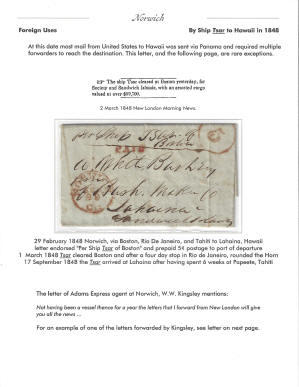 Norwich
Foreign Uses
By Ship Tsar to Hawaii in 1848
At this date most mail from United States to Hawaii was sent via Panama and required multiple
forwarders to reach the destination. This letter, and the following page, are rare exceptions.
The ship Tsar cleared at Boston yesterday, for
Society and Sandwich Islands, with an assorted cargo
valued at over $97,700.
2 March 1848 New London Morning News.
per Ship Tsar of
Boston
PAID
Lahaina
Sandwich Islands
29 February 1848 Norwich, via Boston, Rio De Janeiro, and Tahiti to Lahaina, Hawaii
letter endorsed "Per Ship Tsar of Boston" and prepaid 5¢ postage to port of departure
1 March 1848 Tsar cleared Boston and after a four day stop in Rio De Janeiro, rounded the Horn
17 September 1848 the Tsar arrived at Lahaina after having spent 6 weeks at Papeete, Tahiti
The letter of Adams Express agent at Norwich, W.W. Kingsley mentions:
Not having been a vessel thence for a year the letters that I forward from New London will give
you all the news ...
For an example of one of the letters forwarded by Kingsley, see letter on next page.